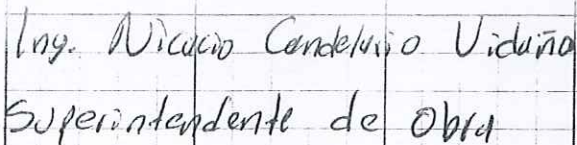 Ing. Nicacio Candelario Viduño
Superintendente de Obra